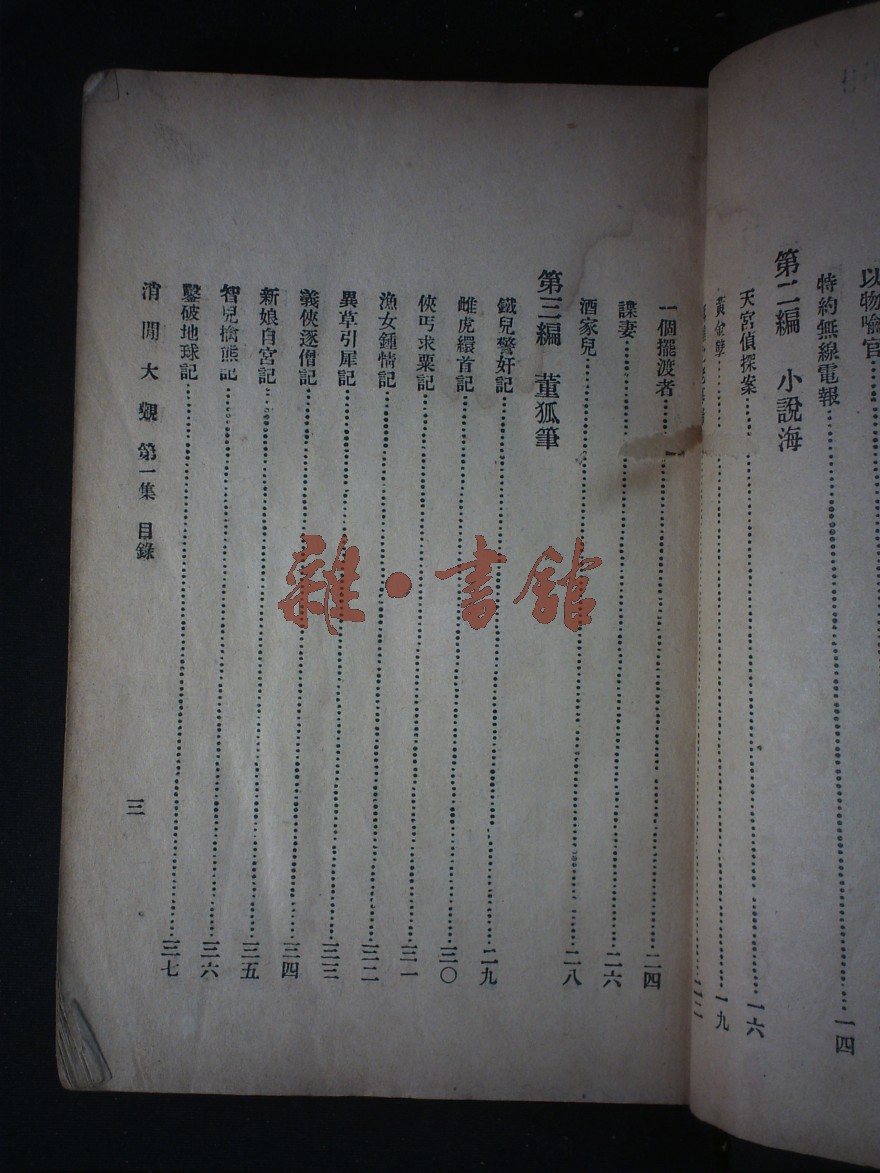 以物喻官
特約無線電報……一四
第二編 小說海
天宮偵探案……一六
黃金孽……一九
一個擺渡者……二四
諜妻……二六
酒家兒……二八
第三編 董狐筆
鐵兒警奸記……二九
雌虎繯首記……三〇
俠丐求粟記……三一
漁女鍾情記……三二
異草引犀記……三三
義俠逐僧記……三四
新娘自宮記……三五
智兒擒熊記……三六
鑿破地球記……三七
消閒大觀 第一集 目錄
三
雜·書館